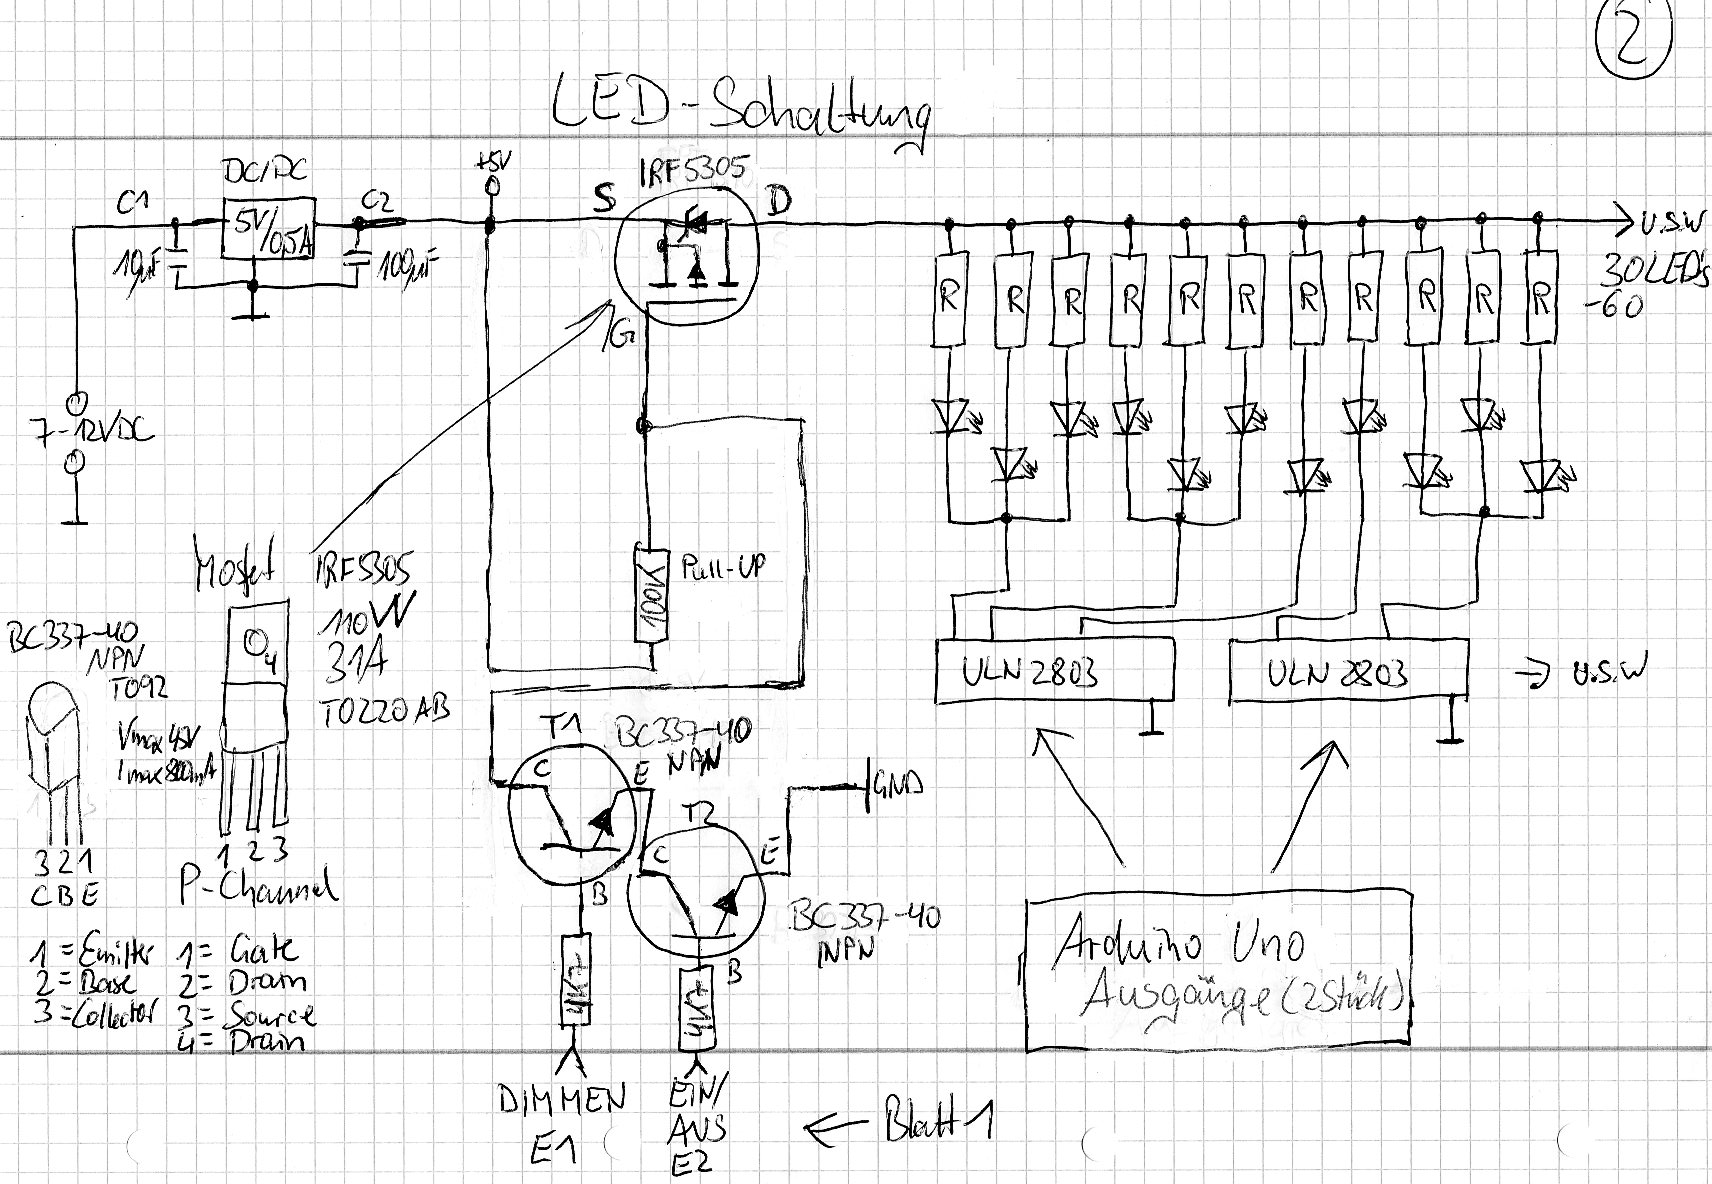 2
LED-Schaltung
DC/DC
C1
5V/0,5A
C2
10µF
100µF
+5V
IRF5305
S
D
G
u.s.w
30 LED's
-60
R R R R R R R R R R R
7-12VDC
Pull-UP
100
Mosfet
IRF5305
110W
31A
TO220AB
4
1 2 3
P-Channel
1 = Gate
2 = Drain
3 = Source
4 = Drain
BC337-40
NPN
TO92
Vmax 45V
Imax 800mA
3 2 1
C B E
1 = Emitter
2 = Base
3 = Collector
T1
BC337-40
NPN
C
E
B
T2
C
E
B
GND
BC337-40
NPN
4K7
4K7
DIMMEN
E1
EIN/
AUS
E2
← Blatt 1
ULN 2803
ULN 2803
→ u.s.w
Arduino Uno
Ausgänge (2 Stück)